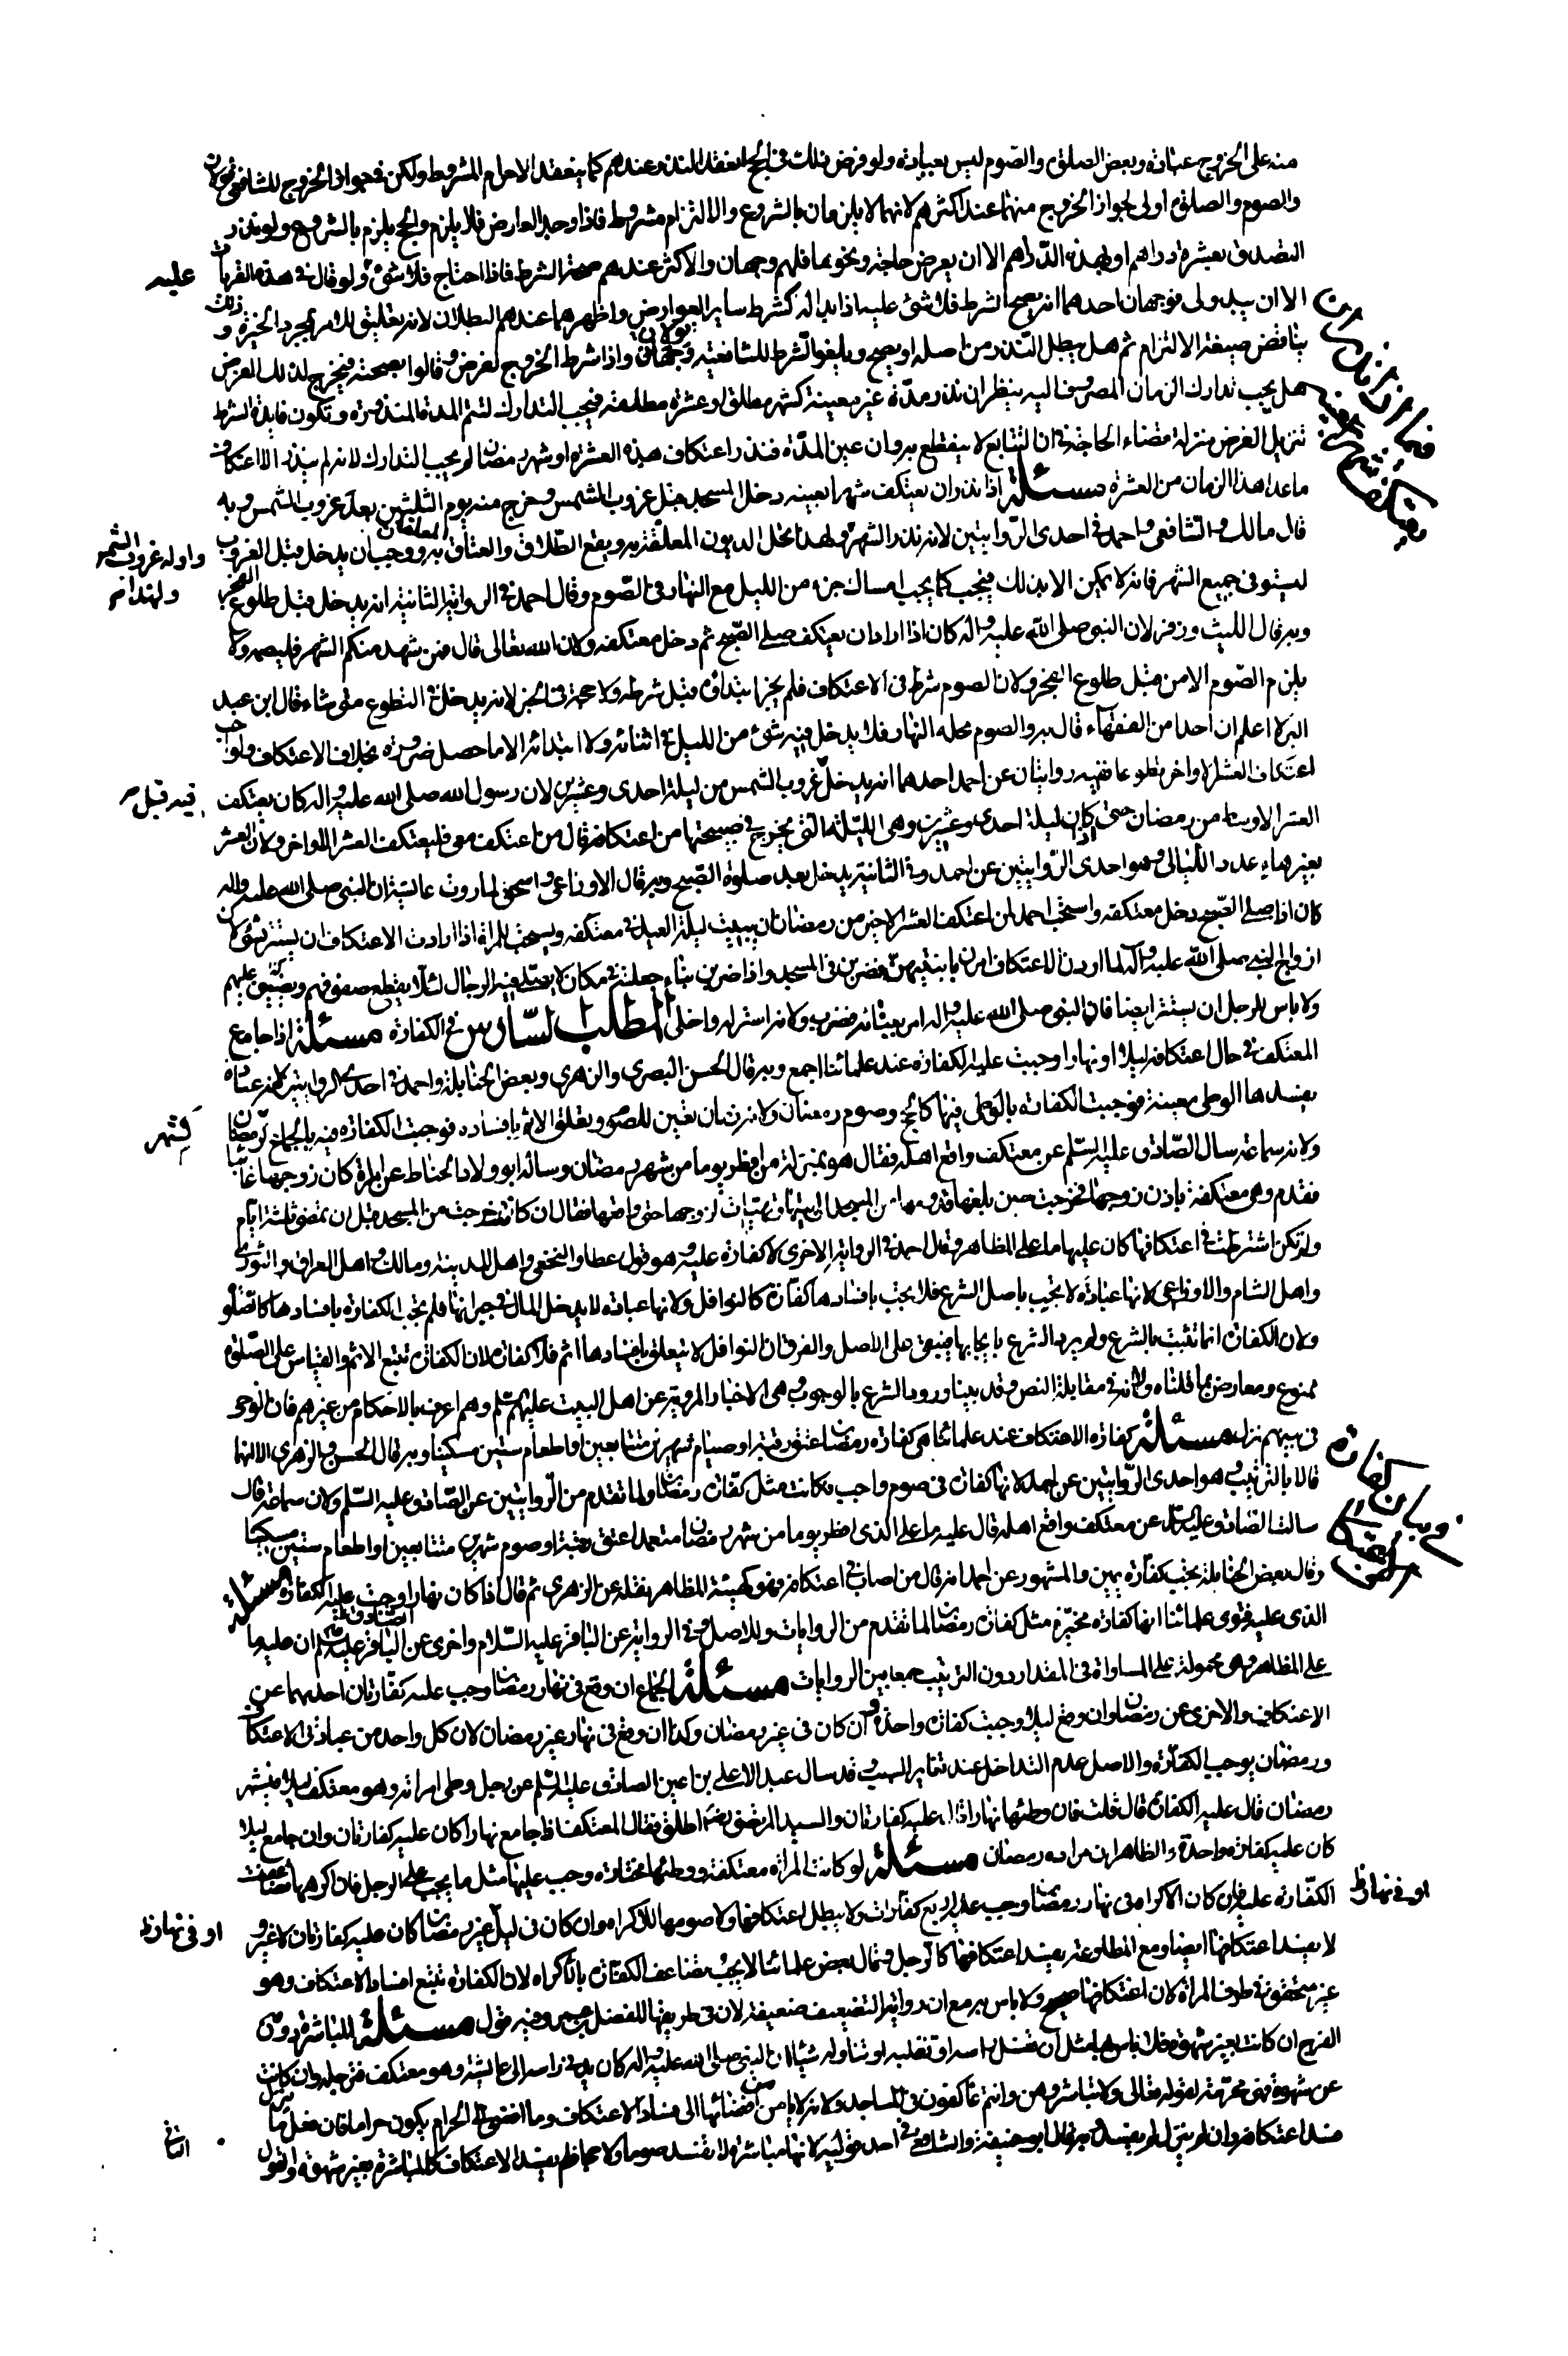 منه على الخروج عبادة وبعض الصلوة والصوم ليس بعبادة ولو فرض ذلك في الحج انعقد النذر عندهم كما ينعقد الاحرام المشروط ولكن في جواز الخروج للشافعي قولان
والصوم والصلوة اولى لجواز الخروج منهما عند اكثرهم لانهما لا يلزمان بالشروع والالتزام مشروط فاذا وجد العارض فلا يلزم والحج يلزم بالشروع ولو نذر
التصدق بعشرة دراهم او بهذه الدراهم الا ان يعرض حاجة ونحوها فلهم وجهان والاكثر عندهم صحة الشرط فاذا احتاج فلا شئ ولو قال في هذه القربات
عليه
الا ان يبدو لى فوجهان احدهما انه يصح الشرط فلا شئ عليه اذا بدا له كشرط ساير العوارض واظهرهما عندهم البطلان لانه تعليق للامر بمجرد الخيرة وذلك
يناقض صيغة الالتزام ثم هل يبطل النذر من اصله او يصح ويلغو الشرط للشافعية قولان واذا شرط الخروج لغرض وقالوا بصحته فيخرج لذلك الغرض
هل يجب تدارك الزمان المصروف اليه ينظر ان نذر مدة غير معينة كشهر مطلق او عشرة مطلقة فيجب التدارك لتتم المدة المنذورة وتكون فايدة الشرط
تنزيل الغرض منزلة قضاء الحاجة في ان التتابع لا ينقطع به وان عين المدة فنذر اعتكاف هذه العشرة او شهر رمضان لم يجب التدارك لانه لم ينذر الا اعتكاف
ما عدا هذا الزمان من العشرة مسئلة اذا نذر ان يعتكف شهرا بعينه دخل المسجد قبل غروب الشمس وخرج منه يوم الثلثين بعد غروب الشمس وبه
قال مالك والشافعي واحمد في احدى الروايتين لانه نذر الشهر ولهذا تحل الديون المعلقة به ويقع الطلاق والعتاق به ووجب ان يدخل قبل الغروب
واوله غروب الشمس
ولهذا
ليستوفى جميع الشهر فانه لا يمكن الا بذلك فيجب كما يجب امساك جزء من الليل مع النهار في الصوم وقال احمد في الرواية الثانية انه يدخل قبل طلوع الفجر
وبه قال الليث وزفر لان النبي صلى الله عليه واله كان اذا اراد ان يعتكف صلى الصبح ثم دخل معتكفه ولان الله تعالى قال فمن شهد منكم الشهر فليصمه ولا
يلزم الصوم الا من قبل طلوع الفجر ولان الصوم شرط في الاعتكاف فلم يجز ابتداؤه قبل شرطه ولا حجة في الخبر لانه يدخل في التطوع متى شاء قال ابن عبد
البر لا اعلم ان احدا من الفقهاء قال به والصوم محله النهار فلا يدخل فيه شئ من الليل في اثنائه ولا ابتدائه الا ما حصل ضرورة بخلاف الاعتكاف ولو احب
اعتكاف العشر الاواخر تطوعا ففيه روايتان عن احمد احدهما انه يدخل غروب الشمس من ليلة احدى وعشرين لان رسول الله صلى الله عليه واله كان يعتكف
فيه قبل
العشر الاوسط من رمضان حتى اذا كان ليلة احدى وعشرين وهى الليلة التى يخرج في صبيحتها من اعتكافه قال من اعتكف معى فليعتكف العشر الاواخر ولان العشر
بغير هاء عدد الليالى وهو احدى الروايتين عن احمد وفي الثانية يدخل بعد صلوة الصبح وبه قال الاوزاعي واسحق لما روت عايشة ان النبي صلى الله عليه واله
كان اذا صلى الصبح دخل معتكفه واستحب احمد لمن اعتكف العشر الاخير من رمضان ان يبيت ليلة العيد في معتكفه ويستحب للمراة اذا ارادت الاعتكاف ان يستتر بشئ لان
ازواج النبي صلى الله عليه واله لما اردن الاعتكاف امرن بابنيتهن فضربن في المسجد واذا ضربن بناء جعلنه في مكان لا يصلى فيه الرجال لئلا يقطع صفوفهم ويضيق عليهم
ولا باس للرجل ان يستتر ايضا فان النبي صلى الله عليه واله امر ببنائه فضرب ولانه استر له واخلى المطلب السادس في الكفارة مسئلة اذا جامع
المعتكف في حال اعتكافه ليلا او نهارا وجبت عليه الكفارة عند علمائنا اجمع وبه قال الحسن البصرى والزهرى وبعض الحنابلة واحمد في احدى الروايتين لانه عبادة
يفسدها الوطى بعينه فوجبت الكفارة بالوطى فيها كالحج وصوم رمضان ولانه زمان تعين للصوم وتعلق الاثم بافساده فوجبت الكفارة فيه بالجماع كرمضان
ولانه سماعة سال الصادق عليه السلم عن معتكف واقع اهله فقال هو بمنزلة من افطر يوما من شهر رمضان وساله ابو ولاد الحناط عن امراة كان زوجها غائبا
فقدم وهى معتكفة باذن زوجها فخرجت حين بلغها قدومه من المسجد الى بيتها وتهيات لزوجها حتى واقعها فقال ان كانت خرجت من المسجد قبل ان تمضى ثلثة ايام
ولم تكن اشترطت في اعتكافها كان عليها ما على المظاهر وقال احمد في الرواية الاخرى لا كفارة عليه وهو قول عطا والنخعي واهل المدينة ومالك واهل العراق والثورى
واهل الشام والاوزاعي لانها عبادة لا تجب باصل الشرع فلا يجب بافسادها كفارة كالنوافل ولانها عبادة لا يدخل المال في جبرانها فلم يجب الكفارة بافسادها كالصلوة
ولان الكفارة انما تثبت بالشرع ولم يرد الشرع بايجابها فيبقى على الاصل والفرق ان النوافل لا يتعلق بافسادها اثم فلا كفارة لان الكفارة تتبع الاثم والقياس على الصلوة
ممنوع ومعارض بما قلناه ولانه في مقابلة النص وقد بينا ورود الشرع بالوجوب وهى الاخبار المروية عن اهل البيت عليهم السلم وهم اعرف بالاحكام من غيرهم فان الوحى
في بيتهم نزل مسئلة كفارة الاعتكاف عند علمائنا هى كفارة رمضان اعتق رقبة او صيام شهرين متتابعين او اطعام ستين مسكينا وبه قال الحسن والزهرى الا انهما
قالا بالترتيب وهو احدى الروايتين عن احمد لانها كفارة في صوم واجب فكانت مثل كفارة رمضان ولما تقدم من الروايتين عن الصادق عليه السلم ولان سماعة قال
سالت الصادق عليه السلم عن معتكف واقع اهله قال عليه ما على الذى افطر يوما من شهر رمضان متعمدا عتق رقبة او صوم شهرين متتابعين او اطعام ستين مسكينا
وبيان كفارة الاعتكاف
وقال بعض الحنابلة يجب كفارة يمين والمشهور عن احمد انه قال من اصاب في اعتكافه فهو كهيئة المظاهر نقله عن الزهرى ثم قال اذا كان نهارا وجبت عليه الكفارة مسئلة
الذى عليه فتوى علمائنا انها كفارة مخيرة مثل كفارة رمضان لما تقدم من الروايات وللاصل وفي الرواية عن الباقر عليه السلام واخرى عن الصادق عليه السلم ان عليه ما
على المظاهر وهى محمولة على المساواة في المقدار دون الترتيب جمعا بين الروايات مسئلة الجماع ان وقع في نهار رمضان وجب عليه كفارتان احديهما عن
الاعتكاف والاخرى عن رمضان وان وقع ليلا وجبت كفارة واحدة وان كان في غير رمضان وكذا ان وقع في نهار غير رمضان لان كل واحد من عبادتى الاعتكاف
ورمضان يوجب الكفارة والاصل عدم التداخل عند تغاير السبب وقد سال عبد الاعلى بن اعين الصادق عليه السلم عن رجل وطى امراته وهو معتكف ليلا في شهر
رمضان قال عليه الكفارة قال قلت فان وطئها نهارا قال عليه كفارتان والسيد المرتضى رضه اطلق فقال المعتكف اذا جامع نهارا كان عليه كفارتان وان جامع ليلا
كان عليه كفارة واحدة والظاهر ان مراده رمضان مسئلة لو كانت المراة معتكفة ووطئها مختارة وجب عليها مثل ما يجب على الرجل فان اكرهها تضاعفت
الكفارة عليه فان كان الاكراه في نهار رمضان وجب عليه اربع كفارات ولا يبطل اعتكافها ولا صومها للاكراه وان كان في ليل غير رمضان كان عليه كفارتان لا غير و
او في نهار
او في نهار
لا يفسد اعتكافها ايضا ومع المطاوعة يفسد اعتكافها كالرجل وقال بعض علمائنا لا يجب تضاعف الكفارة بالاكراه لان الكفارة تتبع افساد الاعتكاف وهو
غير متحقق في طرف المراة لان اعتكافها صحيح ولا باس به مع ان رواية التضعيف ضعيفة لان في طريقها المفضل بن عمر وفيه قول مسئلة المباشرة دون
الفرج ان كانت بغير شهوة فلا باس بها مثل ان تغسل راسه او تفليه او تناوله شيئا لان النبي صلى الله عليه واله كان يدنى راسه الى عايشة وهو معتكف فترجله وان كانت
عن شهوة فهى محرمة لقوله تعالى ولا تباشروهن وانتم عاكفون في المساجد ولانه لا يامن من افضائها الى فساد الاعتكاف وما افضى الى الحرام يكون حراما فان فعل فانزل
فسد اعتكافه وان لم ينزل لم يفسد وبه قال ابو حنيفة والشافعي في احد قوليه لانها مباشرة لا تفسد صوما ولا حجا فلم يفسد الاعتكاف كالمباشرة بغير شهوة والقول
الثاني